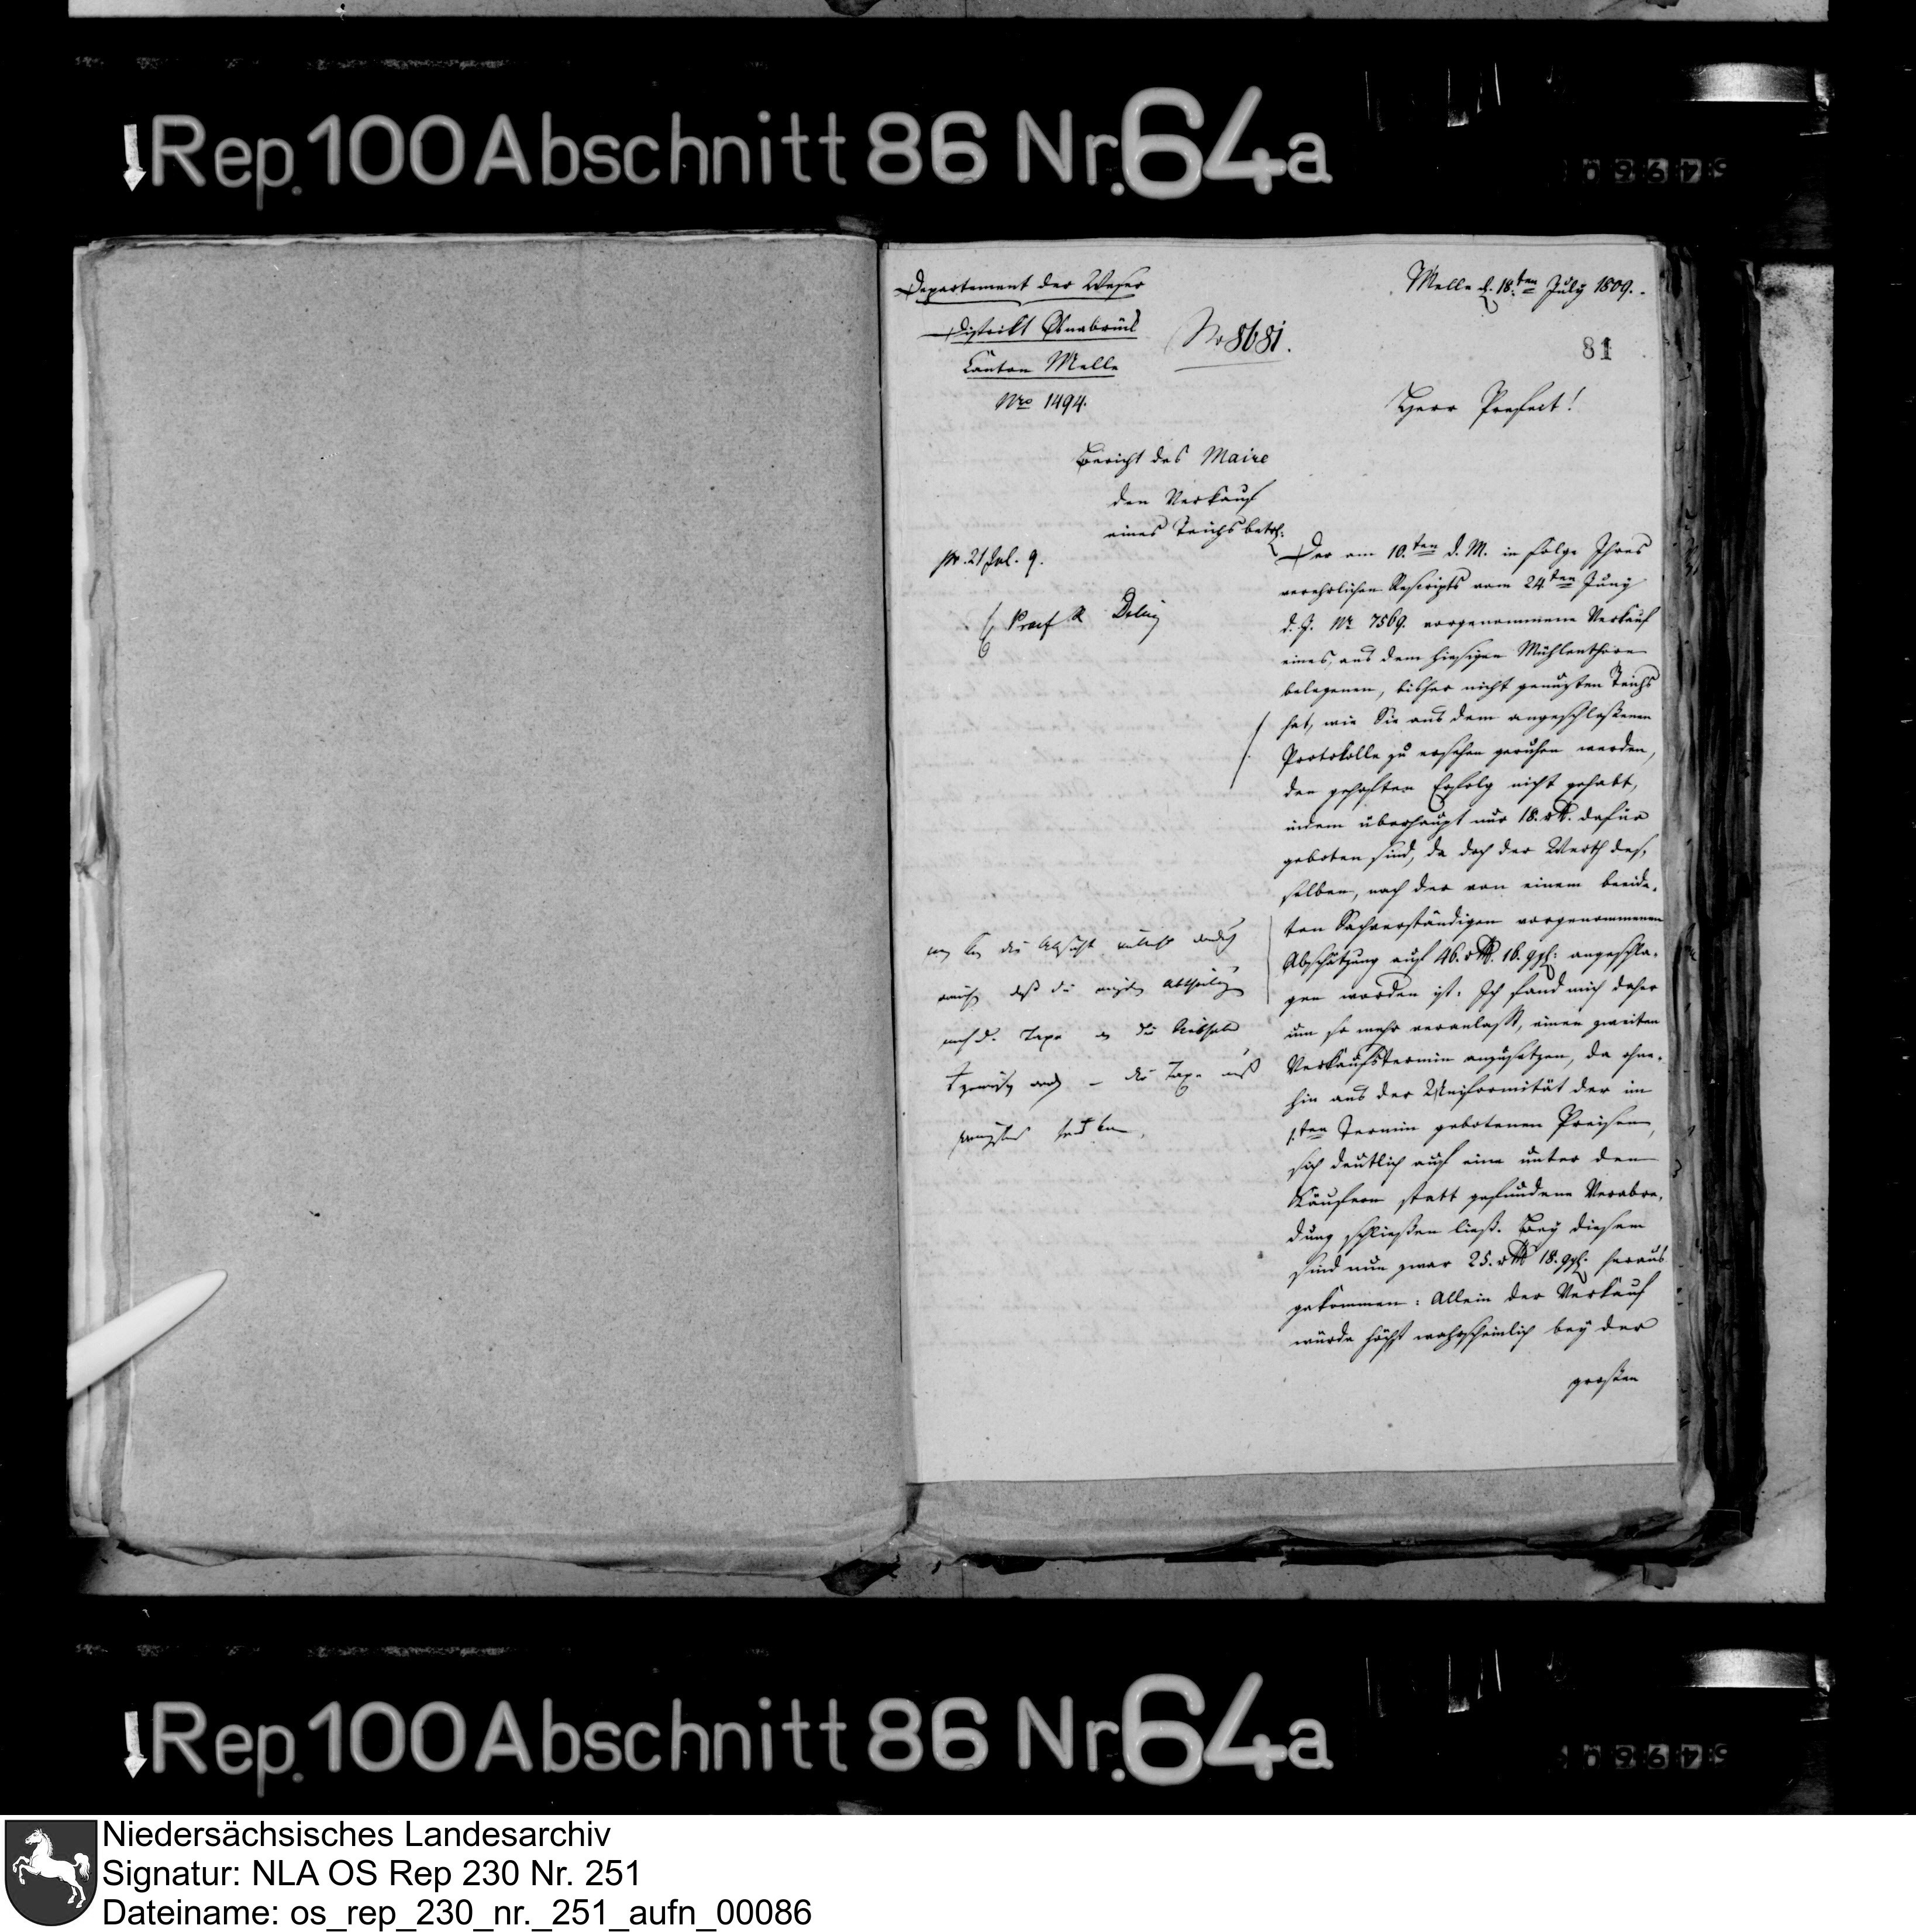 Rep. 100 Abschnitt 86 Nr. 64a
Departement der Weser
Distrikt Osnabrück
Canton Melle
Nro 1494.
No 8681.
Melle d. 18.ten July 1809.
81
Herr Prefect!
Bericht des Maire
den Verkauf
eines Teichs betrf.
pr. 21 Jul. 9.
Der am 10.ten d. M. in folge Ihres
verehrlichen Rescripts vom 24.ten Juny
d. J. Nr 7569. vorgenommene Verkauf
eines, aus dem hiesigen Mühlenthore
belegenen, bisher nicht genuzten Teichs
hat, wie Sie aus dem angeschloßenen
Protokolle zu ersehen geruhen werden,
den gehofften Erfolg nicht gehabt,
indem überhaupt nur 18. rthl. dafür
geboten sind, da doch der Werth des,
selben, nach der von einem beeidig,
ten Sachverständigen vorgenommenen
Abschätzung auf 46. rthl. 16. ggl: angeschla,
gen worden ist. Ich fand mich daher
um so mehr veranlaßt, einen zweiten
Verkaufstermin anzusetzen, da ohne,
hin aus der Uniformität der im
1.ten Termin gebotenen Preisen,
sich deutlich auf eine unter den
Käufern statt gefundene Verabre,
dung schließen ließ. Bey diesem
sind nun zwar 25. rthl 18. ggl. heraus
gekommen: Allein der Verkauf
würde höchst wahrscheinlich bey der
großen
die Absicht
daß die
Taxe
die Taxe muß
Rep. 100 Abschnitt 86 Nr. 64a
Niedersächsisches Landesarchiv
Signatur: NLA OS Rep 230 Nr. 251
Dateiname: os_rep_230_nr._251_aufn_00086